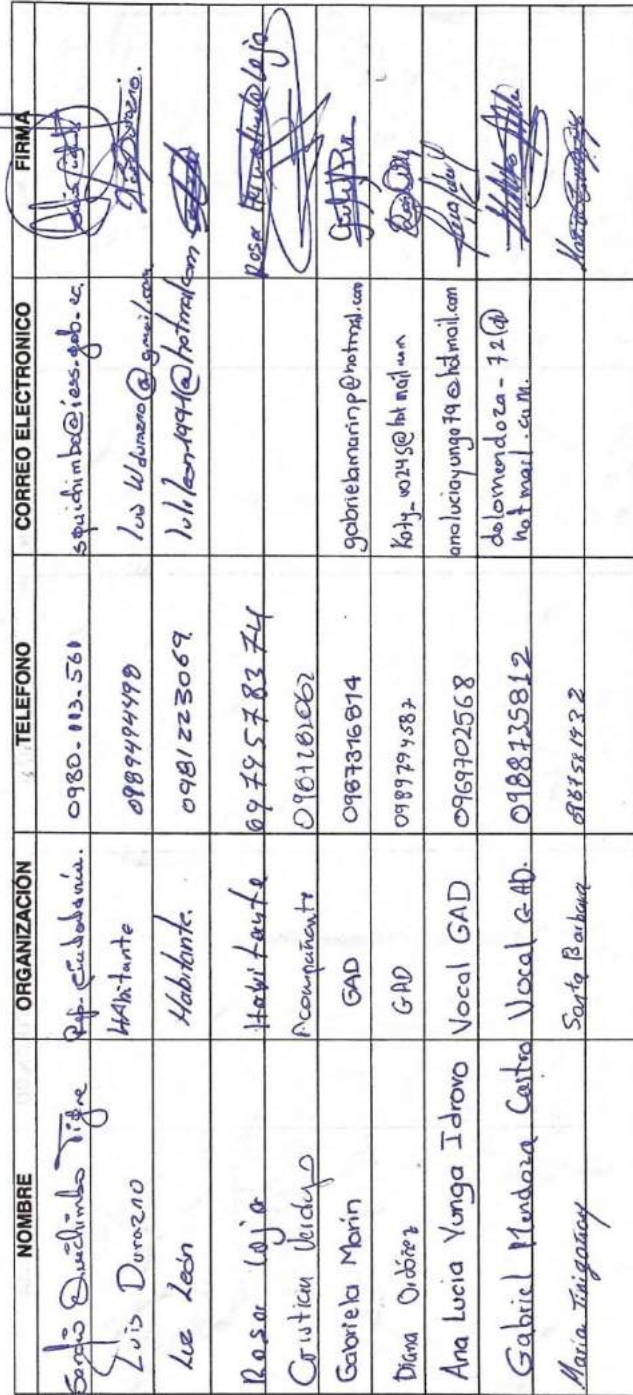 NOMBRE ORGANIZACIÓN TELEFONO CORREO ELECTRONICO FIRMA
Quichimbo Tigre Rep. Ciudadanía. 0980-113-561 squichimbo@iess.gob.ec.
Luis Durazno HAbitante 0989494498 Luis Durazno.
Luz León Habitante. 0981223069. lululeon1991@hotmail.com
Rosa Loja Habitante Rosa Loja
Cristian Acompañante
Gabriela Marín GAD 0987316814 gabrielamarinp@hotmail.com
Diana Ordóñez GAD 0989794587
Ana Lucia Yunga Idrovo Vocal GAD 0969702568 analuciayunga79@hotmail.com
Gabriel Mendoza Castro Vocal GAD. 0988735812 dalomendoza-72@
hotmail.com.
María Santa Barbara